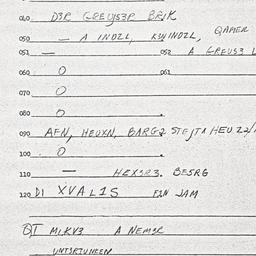 010 D3R GREUS3P BRIK
050 — A INDZL, KWINDZL, QAMER
051 — 052 A GREUS3 L
060 O 061
070 O
080 O
090 AFN, HEUXN, BARG2 STEJTA HEU 22/
100 O
110 — HEXSR3. BESRG
120 DI XVAL1S FAN JAM
QT MIKV3 A NEMSR
UNTSRTUNEEN